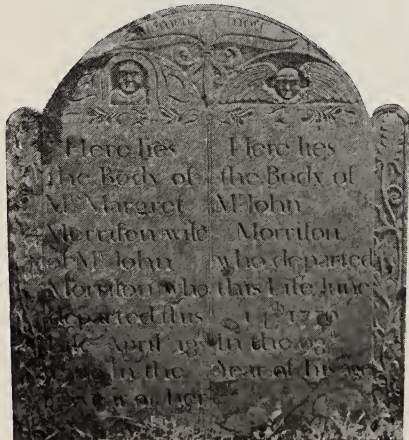 Memento mori
Here lies
the Body of
Mrs Margret
Morrison wife
of Mr John
Morrison who
departed this
Life April 18th
In the
year of her
Here lies
the Body of
Mr John
Morrison
who departed
this Life June
14th 1776
In the
Year of his age